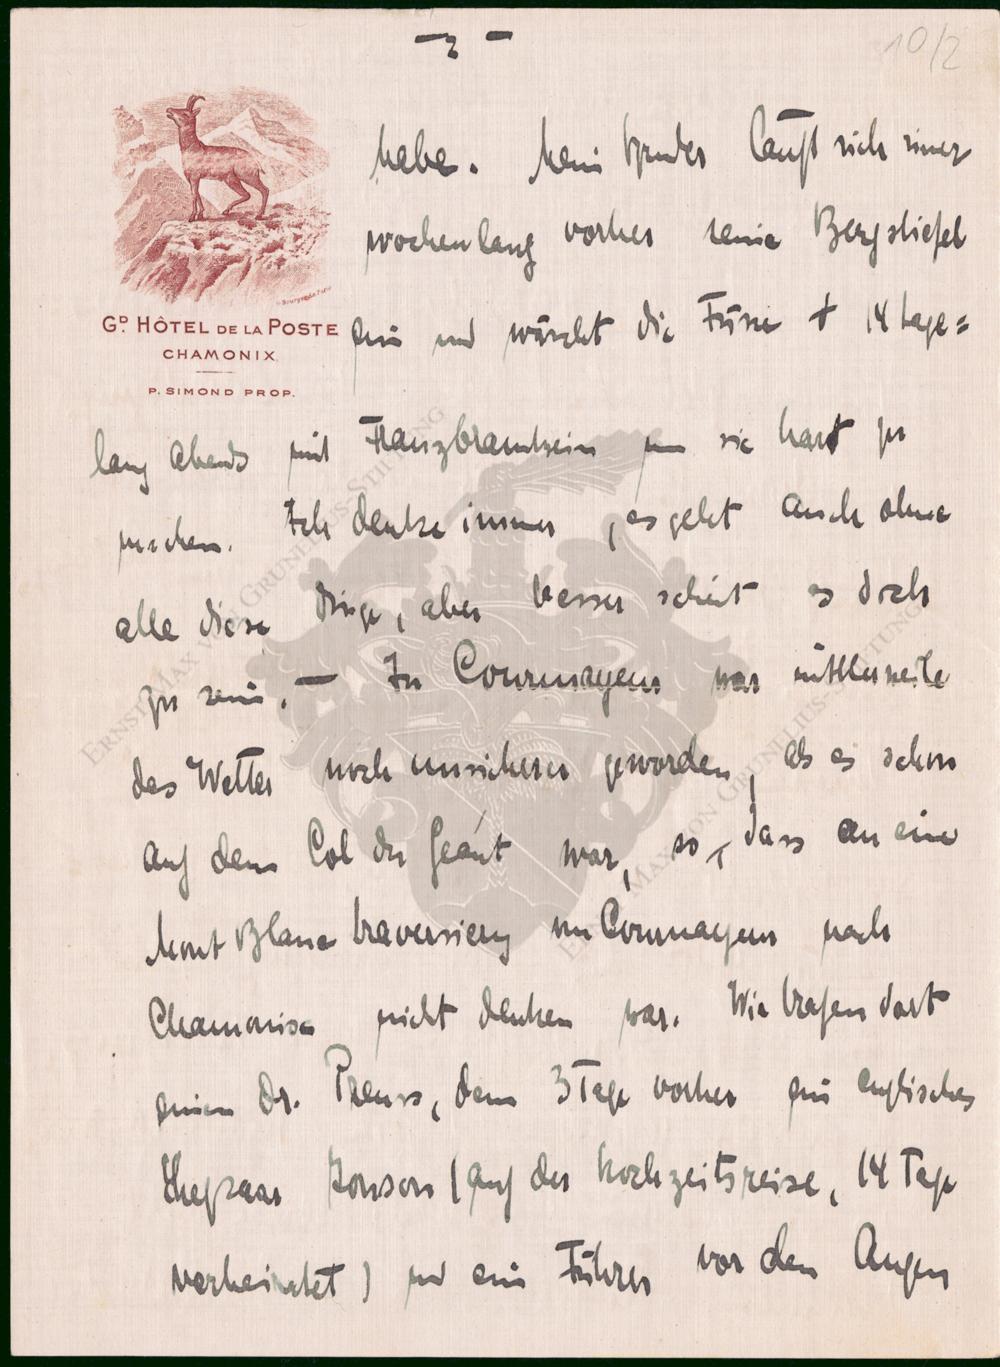 - 2 -
10/2
habe. Mein Bruder läuft sich immer
wochenlang vorher seine Bergstiefel
ein und wäscht die Füsse + 14 tage=
lang abends mit Franzbrantwein um sie hart zu
machen. Ich denke immer, es geht auch ohne
alle diese Dinge, aber besser scheint es doch
zu sein. — In Courmayeur war mittlerweile
das Wetter noch unsicherer geworden, als es schon
auf dem Col du Géant war, so, dass an eine
Mont Blanc traversierg von Courmayeur nach
Chamonix nicht denken war. Wir trafen dort
einen Dr. Preuss, dem 3 Tage vorher ein englisches
Ehepaar Jonson (auf der Hochzeitsreise, 14 Tage
verheiratet) und ein Führer vor den Augen
GD HÔTEL DE LA POSTE
CHAMONIX
P. SIMOND PROP.
ERNST MAX VON GRUNELIUS-STIFTUNG
ERNST MAX VON GRUNELIUS-STIFTUNG